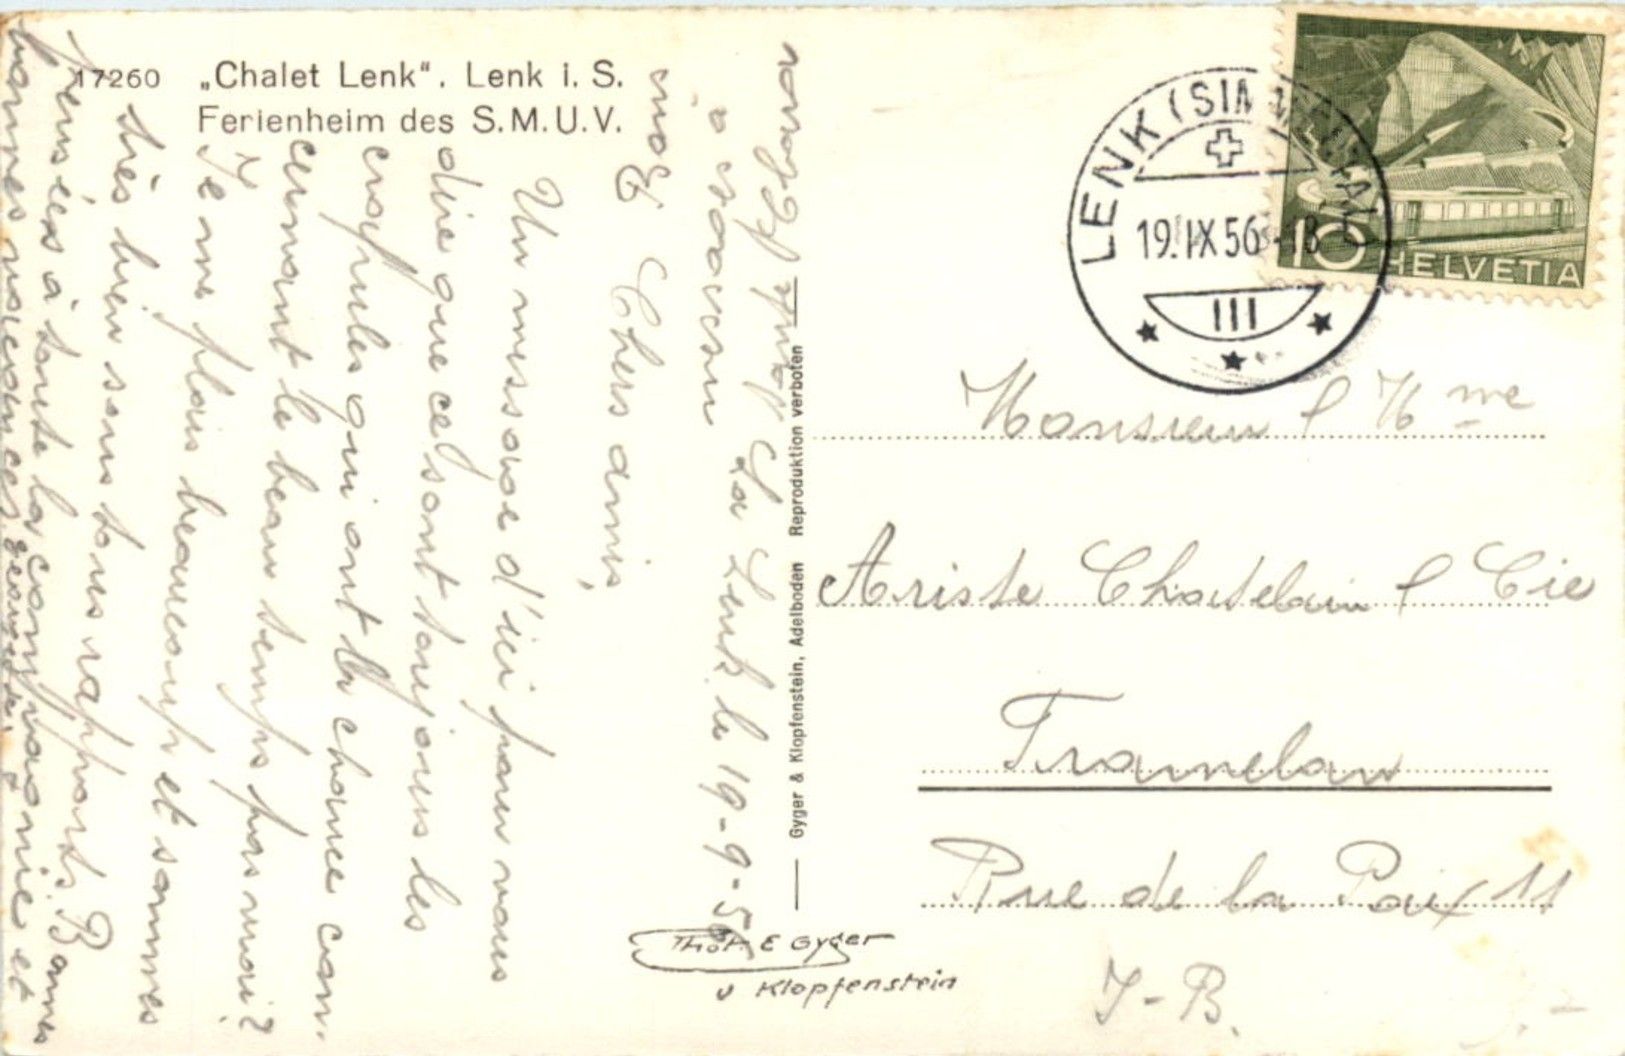 17260 „Chalet Lenk". Lenk i. S.
Ferienheim des S.M.U.V.
LENK (SIMMENTAL)
19.IX.56 - 18
III
10
HELVETIA
La Lenk le 19-9-56
Chers amis,
Un message d'ici pour vous
dire que cel sont toujours les
crapules qui ont la chance con-
cernant le beau temps pas moi?
Je me plais beaucoup et sommes
très bien sous tous rapports. Bonnes
pensées à toute la compagnie et
bonnes vacances
Gyger & Klopfenstein, Adelboden Reproduktion verboten
Phot. E Gyger
u Klopfenstein
Monsieur & Mme
Ariste Chatelain & Cie
Tramelan
Rue de la Paix 11
J-B.